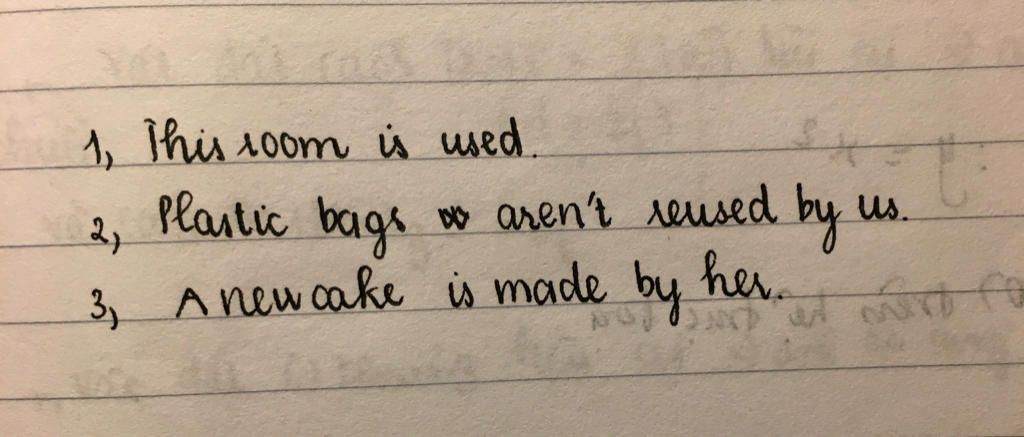 1, This room is used.
2, Plastic bags aren't reused by us.
3, A new cake is made by her.